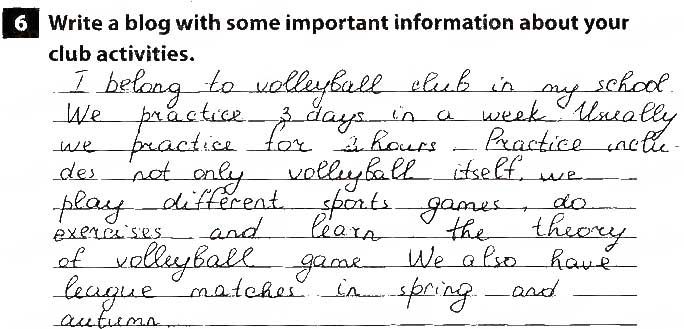 6 Write a blog with some important information about your
club activities.
I belong to volleyball club in my school.
We practice 3 days in a week. Usually
we practice for 2 hours. Practice inclu-
des not only volleyball itself, we
play different sports games, do
exercises and learn the theory
of volleyball game. We also have
league matches in spring and
autumn.